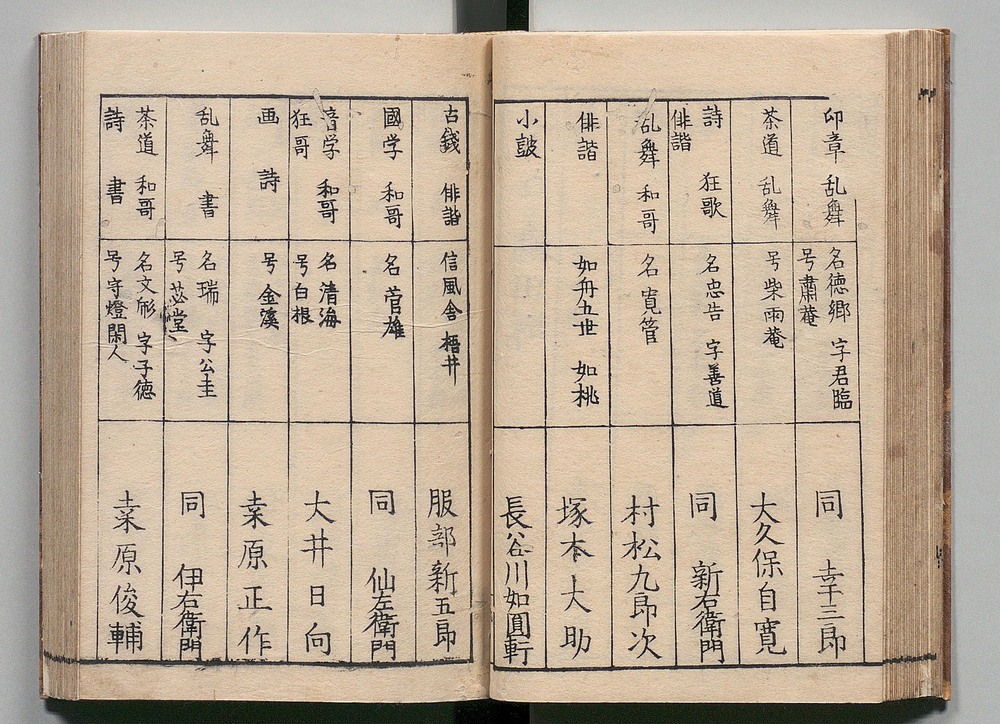 印章 乱舞
名徳郷 字君臨
号粛菴
同 幸三郎
茶道 乱舞
号柴雨菴
大久保自寛
詩 狂歌
俳諧
名忠告 字善道
同 新右衛門
乱舞 和哥
名寛管
村松九郎次
俳諧
如舟五世 如桃
塚本大助
小鼓
長谷川如圓軒
古錢 俳諧
信風舎 梧井
服部新五郎
國学 和哥
名 菅雄
同 仙左衛門
音学 和哥
狂哥
名 清海
号 白根
大井日向
画 詩
号 金溪
桒原正作
乱舞 書
名瑞 字公圭
号 苾堂
同 伊右衛門
茶道 和哥
詩 書
名文彨 字子徳
号守燈閑人
桒原俊輔